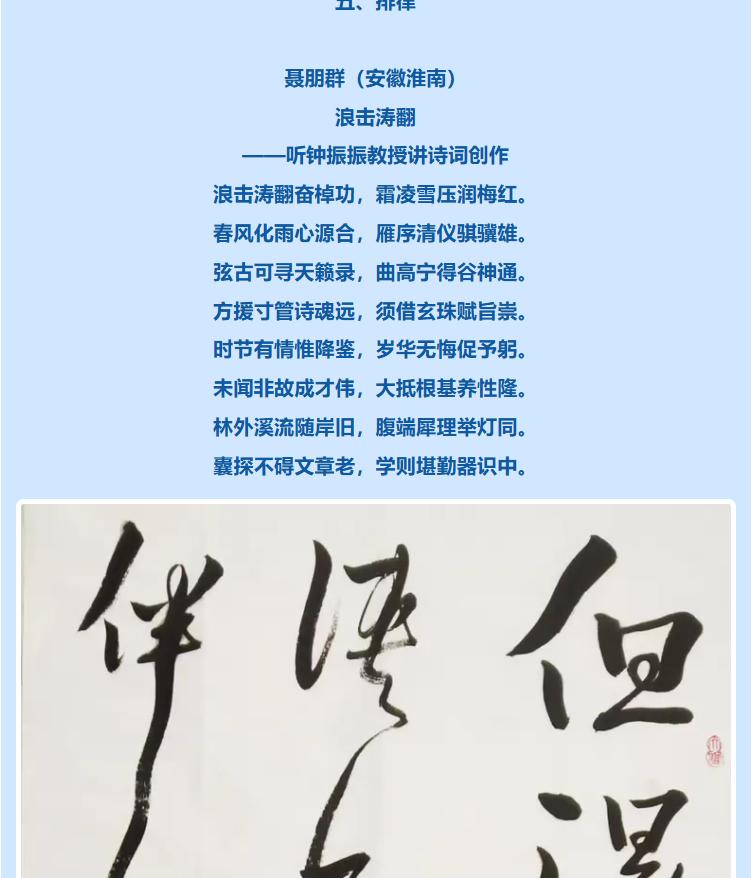 五、排律
聂朋群（安徽淮南）
浪击涛翻
——听钟振振教授讲诗词创作
浪击涛翻奋棹功，霜凌雪压润梅红。
春风化雨心源合，雁序清仪骐骥雄。
弦古可寻天籁录，曲高宁得谷神通。
方援寸管诗魂远，须借玄珠赋旨崇。
时节有情惟降鉴，岁华无悔促予躬。
未闻非故成才伟，大抵根基养性隆。
林外溪流随岸旧，腹端犀理举灯同。
囊探不碍文章老，学则堪勤器识中。
但
得